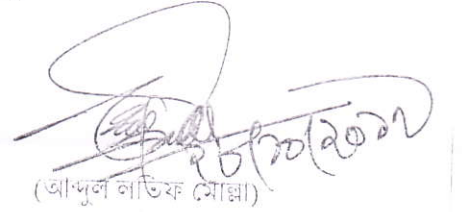 ২৮/১০/২০১৮
(আব্দুল লতিফ মোল্লা)